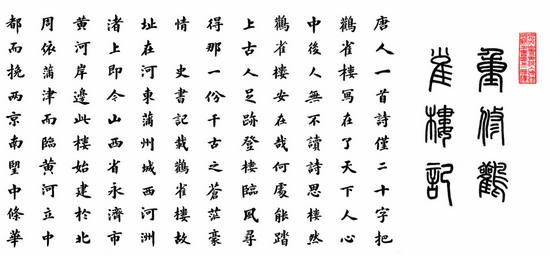 重修鸛
雀樓記
唐人一首詩僅二十字把
鸛雀樓寫在了天下人心
中後人無不讀詩思樓然
鸛雀樓安在哉何處能踏
上古人足跡登樓臨風尋
得那一份千古之蒼茫豪
情 史書記載鸛雀樓故
址在河東蒲州城西河洲
渚上即今山西省永濟市
黃河岸邊此樓始建於北
周依蒲津而臨黃河立中
都而挽兩京南望中條華